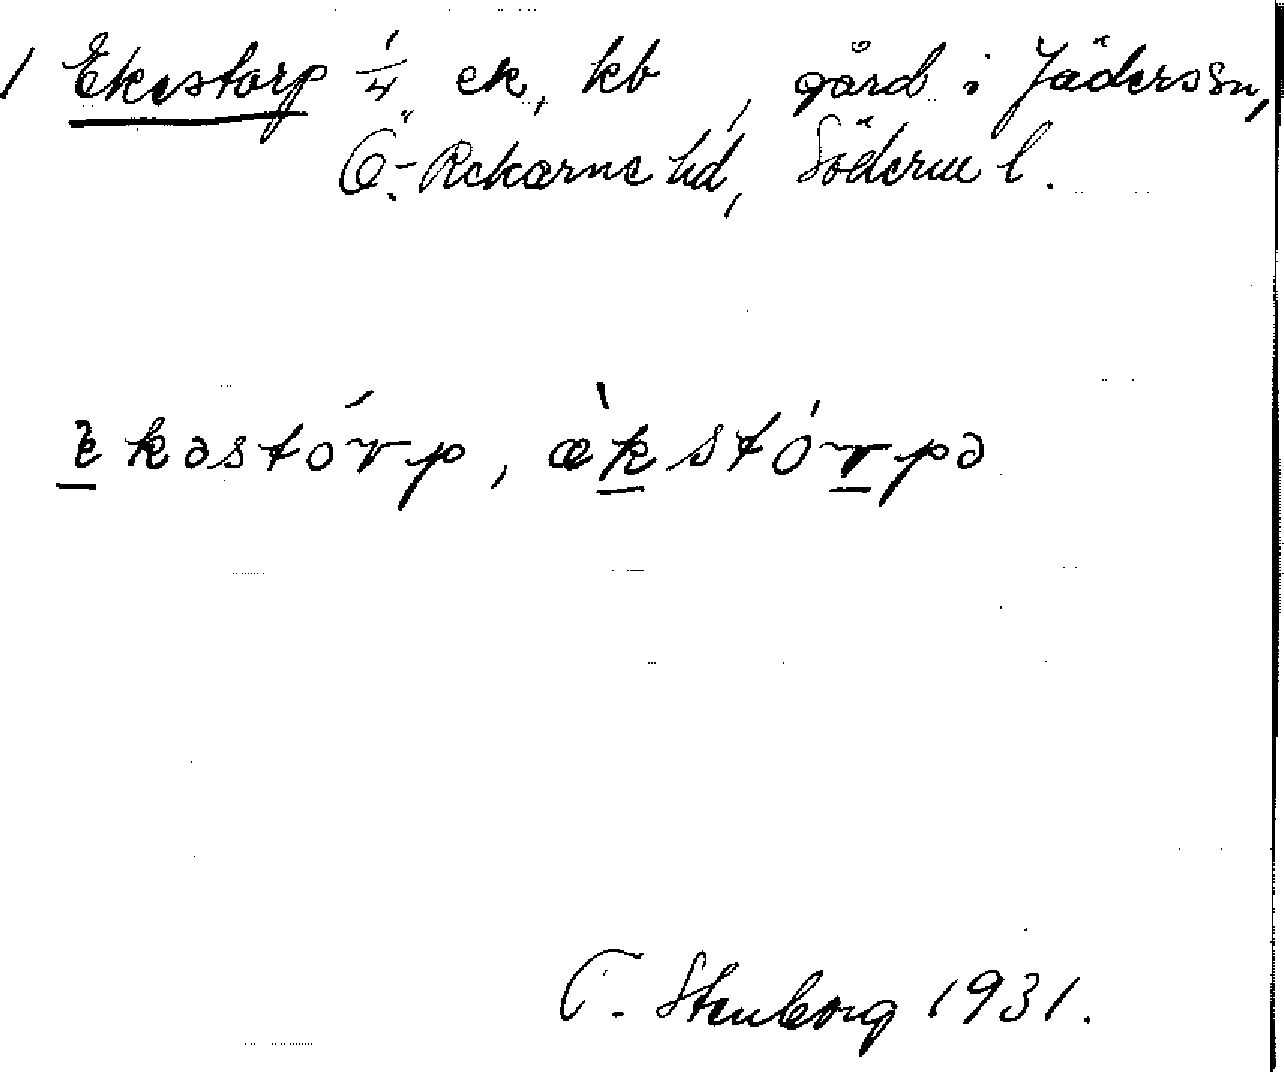 1 Ekestorp 1/4 ek, kb , gård i Jäders sn,
Ö.-Rekarne hd, Söderm l.
èkəstórp, æ̀kstórpə
T. Stenborg 1931.